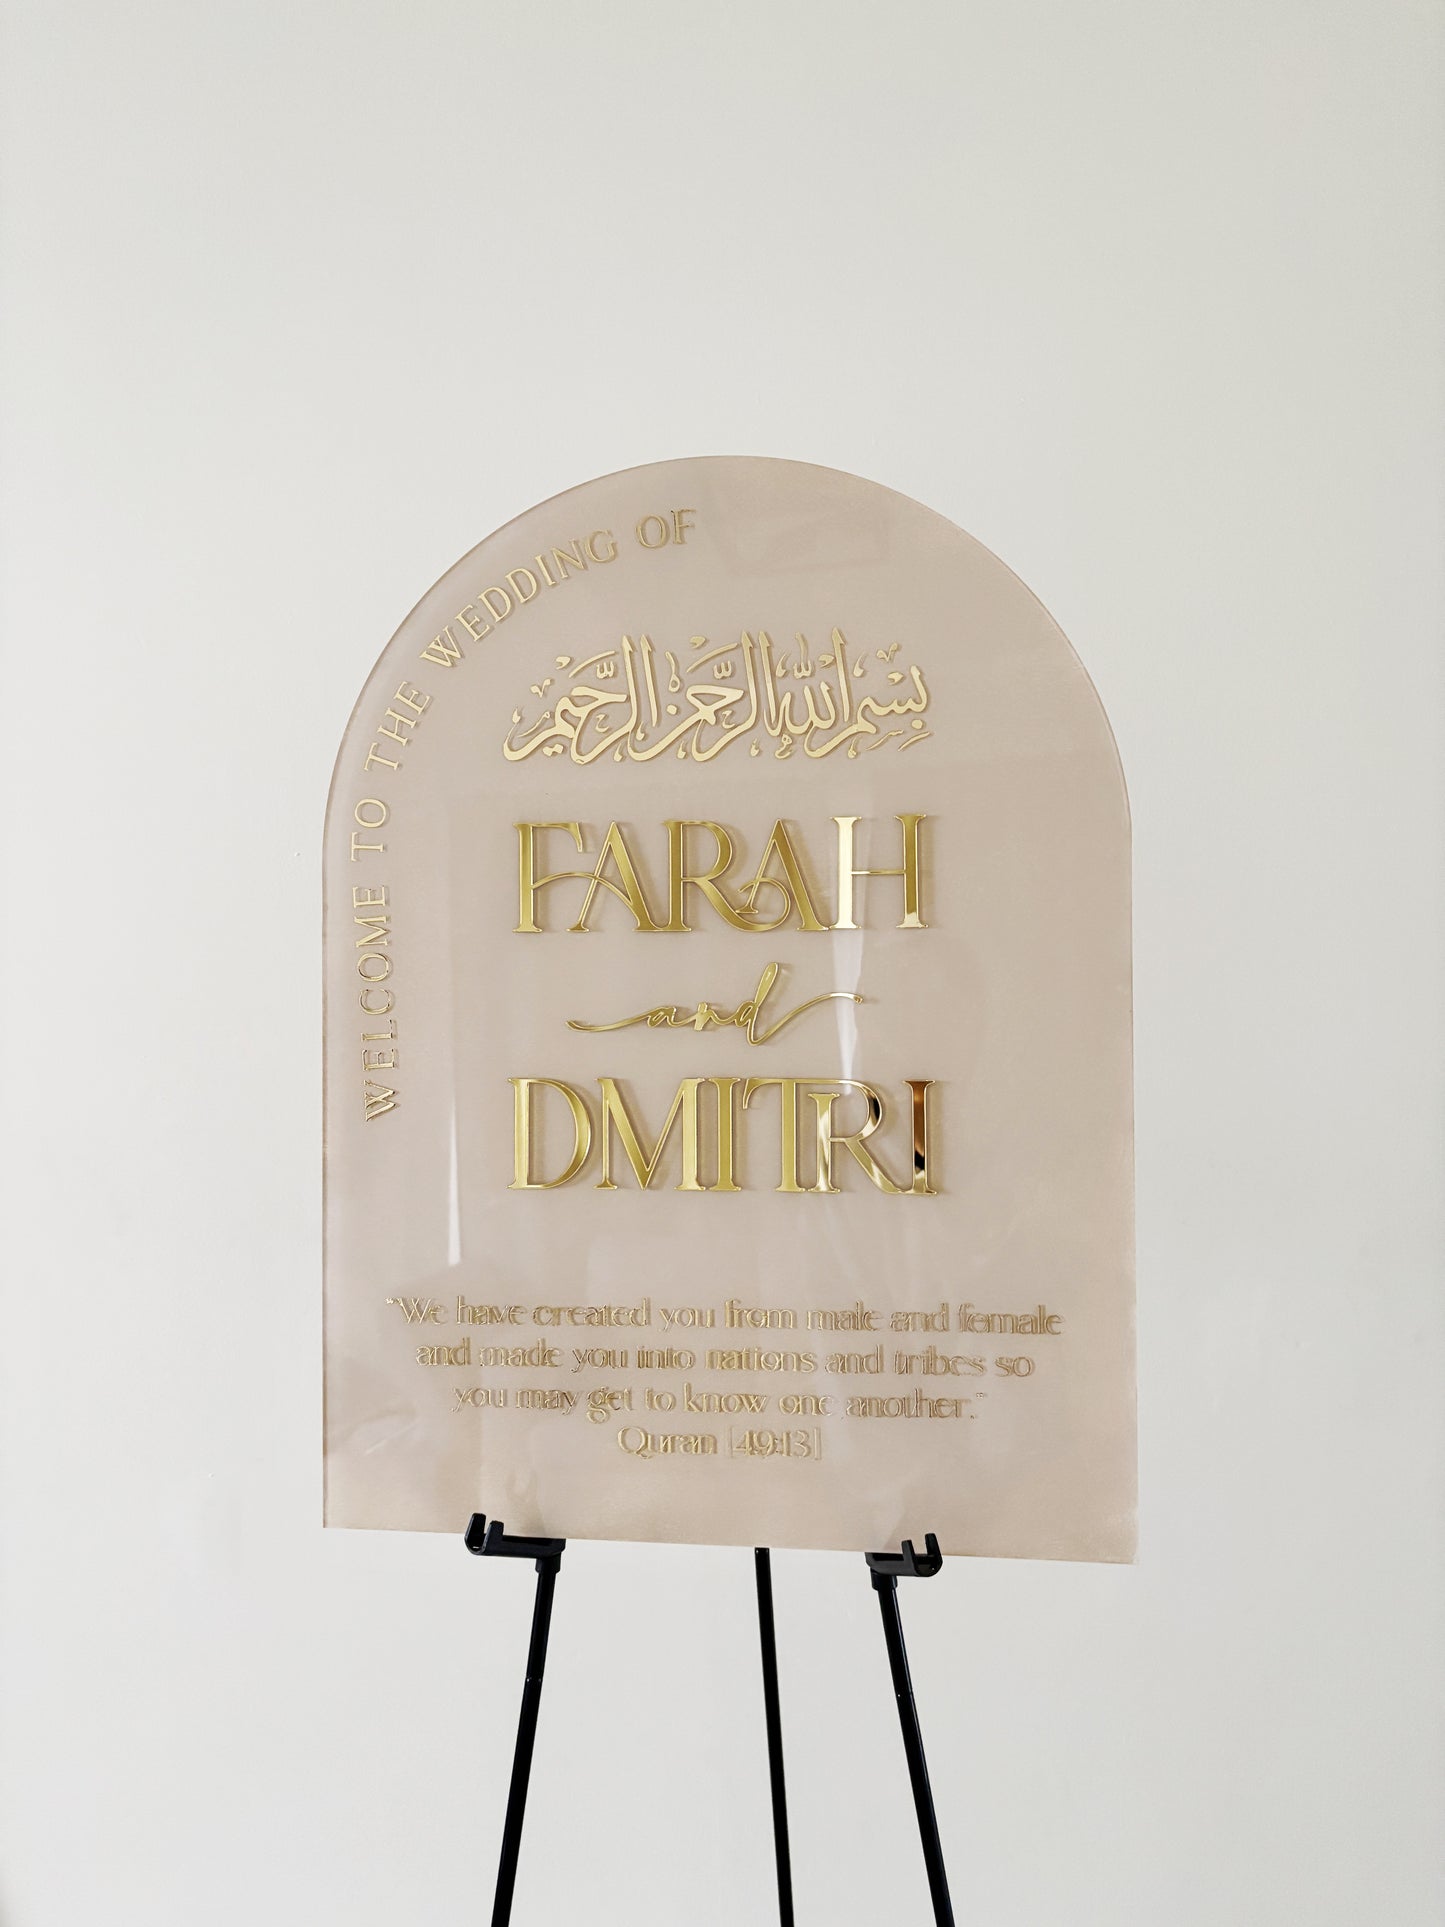 WELCOME TO THE WEDDING OF
بِسْمِ اللهِ الرَّحْمٰنِ الرَّحِيْمِ
FARAH
and
DMITRI
"We have created you from male and female
and made you into nations and tribes so
you may get to know one another."
Quran [49:13]